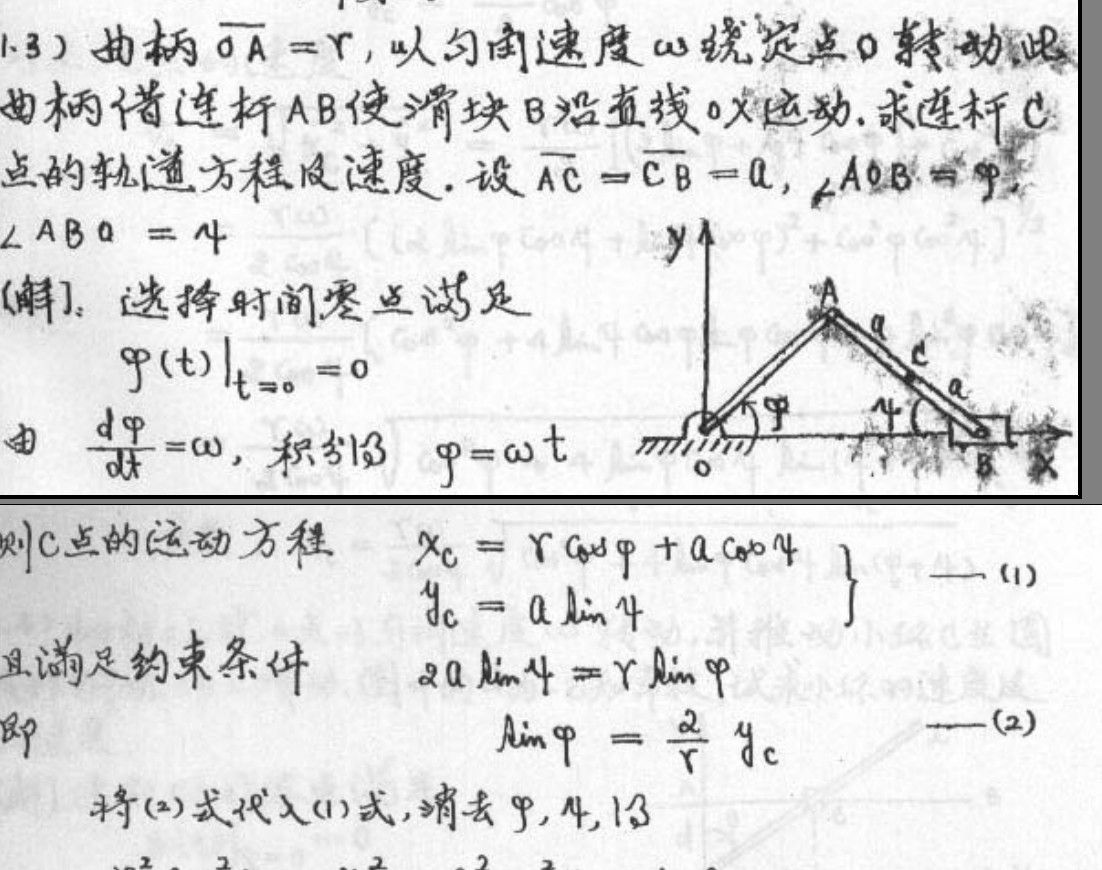 1.3) 曲柄 O̅A̅ = r, 以匀角速度 ω 绕定点 O 转动. 此
曲柄借连杆 AB 使滑块 B 沿直线 OX 运动. 求连杆 C
点的轨道方程及速度. 设 A̅C̅ = C̅B̅ = a, ∠AOB = φ,
∠ABO = ψ
[解]: 选择时间零点满足
φ(t)|t=0 = 0
由 dφ/dt = ω, 积分得 φ = ωt
y
A
a
C
a
φ
ψ
O
B
X
则C点的运动方程 x_c = r cosφ + a cosψ
y_c = a sinψ
} —(1)
且满足约束条件 2a sinψ = r sinφ
即 sinφ = 2/r y_c —(2)
将(2)式代入(1)式, 消去 φ, ψ, 得